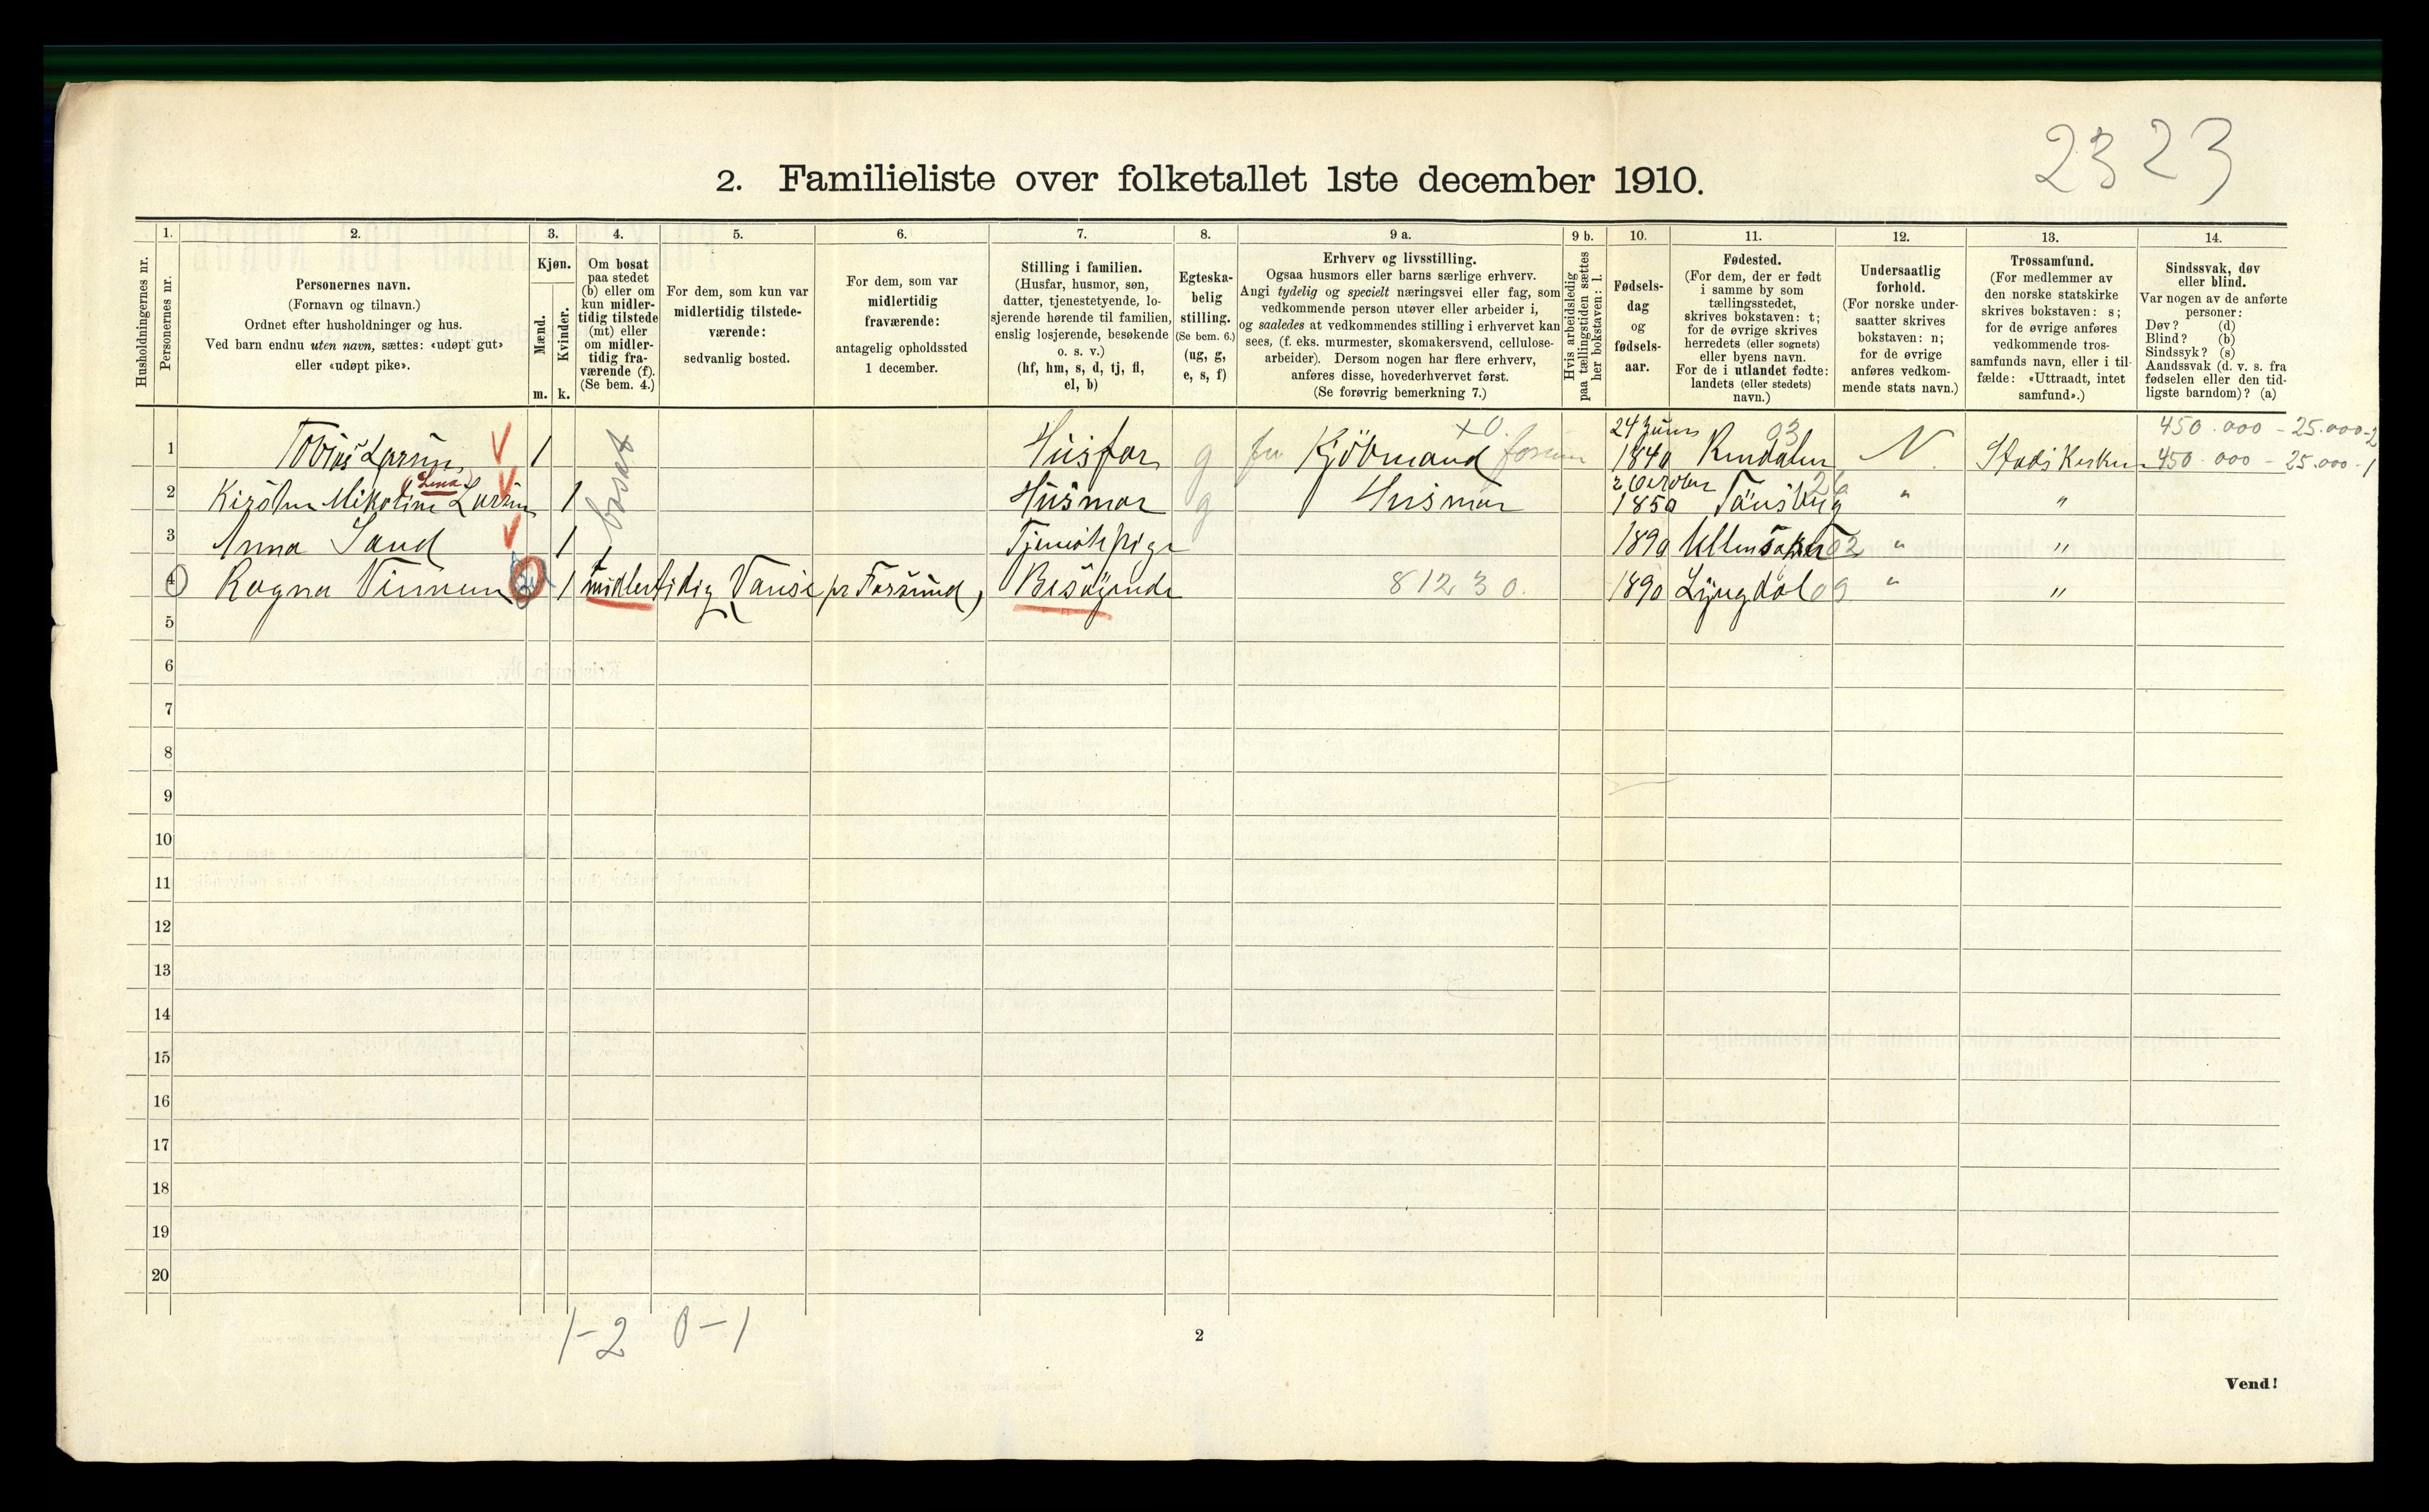 2323
2. Familieliste over folketallet 1ste december 1910.
Husholdningernes nr.
1.
Personernes nr.
2.
Personernes navn.
(Fornavn og tilnavn.)
Ordnet efter husholdninger og hus.
Ved barn endnu uten navn, sættes: «udøpt gut»
eller «udøpt pike».
3.
Kjøn.
Mænd.
Kvinder.
m. k.
4.
Om bosat
paa stedet
(b) eller om
kun midler-
tidig tilstede
(mt) eller
om midler-
tidig fra-
værende (f).
(Se bem. 4.)
5.
For dem, som kun var
midlertidig tilstede-
værende:
sedvanlig bosted.
6.
For dem, som var
midlertidig
fraværende:
antagelig opholdssted
1 december.
7.
Stilling i familien.
(Husfar, husmor, søn,
datter, tjenestetyende, lo-
sjerende hørende til familien,
enslig losjerende, besøkende
o. s. v.)
(hf, hm, s, d, tj, fl,
el, b)
8.
Egteska-
belig
stilling.
(Se bem. 6.)
(ug, g,
e, s, f)
9 a.
Erhverv og livsstilling.
Ogsaa husmors eller barns særlige erhverv.
Angi tydelig og specielt næringsvei eller fag, som
vedkommende person utøver eller arbeider i,
og saaledes at vedkommendes stilling i erhvervet kan
sees, (f. eks. murmester, skomakersvend, cellulose-
arbeider). Dersom nogen har flere erhverv,
anføres disse, hovederhvervet først.
(Se forøvrig bemerkning 7.)
9 b.
Hvis arbeidsledig
paa tællingstiden sættes
her bokstaven: l.
10.
Fødsels-
dag
og
fødsels-
aar.
11.
Fødested.
(For dem, der er født
i samme by som
tællingsstedet,
skrives bokstaven: t;
for de øvrige skrives
herredets (eller sognets)
eller byens navn.
For de i utlandet fødte:
landets (eller stedets)
navn.)
12.
Undersaatlig
forhold.
(For norske under-
saatter skrives
bokstaven: n;
for de øvrige
anføres vedkom-
mende stats navn.)
13.
Trossamfund.
(For medlemmer av
den norske statskirke
skrives bokstaven: s;
for de øvrige anføres
vedkommende tros-
samfunds navn, eller i til-
fælde: «Uttraadt, intet
samfund».)
14.
Sindssvak, døv
eller blind.
Var nogen av de anførte
personer:
Døv? (d)
Blind? (b)
Sindssyk? (s)
Aandssvak (d. v. s. fra
fødselen eller den tid-
ligste barndom)? (a)
x0. 24 Juni 03 450.000 - 25.000-2
1 Tobias Larsen V 1 bosat Husfar g Kjöbmand 1840 Rendalen N. Stads Kirken 450.000 - 25.000-1
Lina
2 Kirsten Nikoline Larsen V 1 Husmor g Husmor 1850 Tönsberg 26 " "
3 Anna Sand V 1 Tjenestepige 1890 Ullensaker 02 " "
4 Ragna Vinnen 1 midlertidig Vanse pr Farsund, Besögende 81230. 1890 Lyngdal 09 " "
5
6
7
8
9
10
11
12
13
14
15
16
17
18
19
20
1-2 0-1
2
Vend!